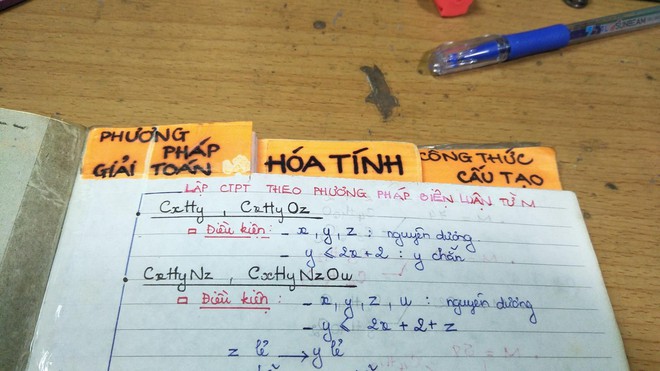 PHƯƠNG
PHÁP
GIẢI TOÁN
HÓA TÍNH
CÔNG THỨC
CẤU TẠO
LẬP CTPT THEO PHƯƠNG PHÁP BIỆN LUẬN TỪ M
CxHy , CxHyOz
Điều kiện: - x, y, z : nguyên dương
- y ⩽ 2x + 2 : y chẵn
CxHyNz , CxHyNzOu
Điều kiện : - x, y, z, u : nguyên dương
- y ⩽ 2x + 2 + z
z lẻ → y lẻ